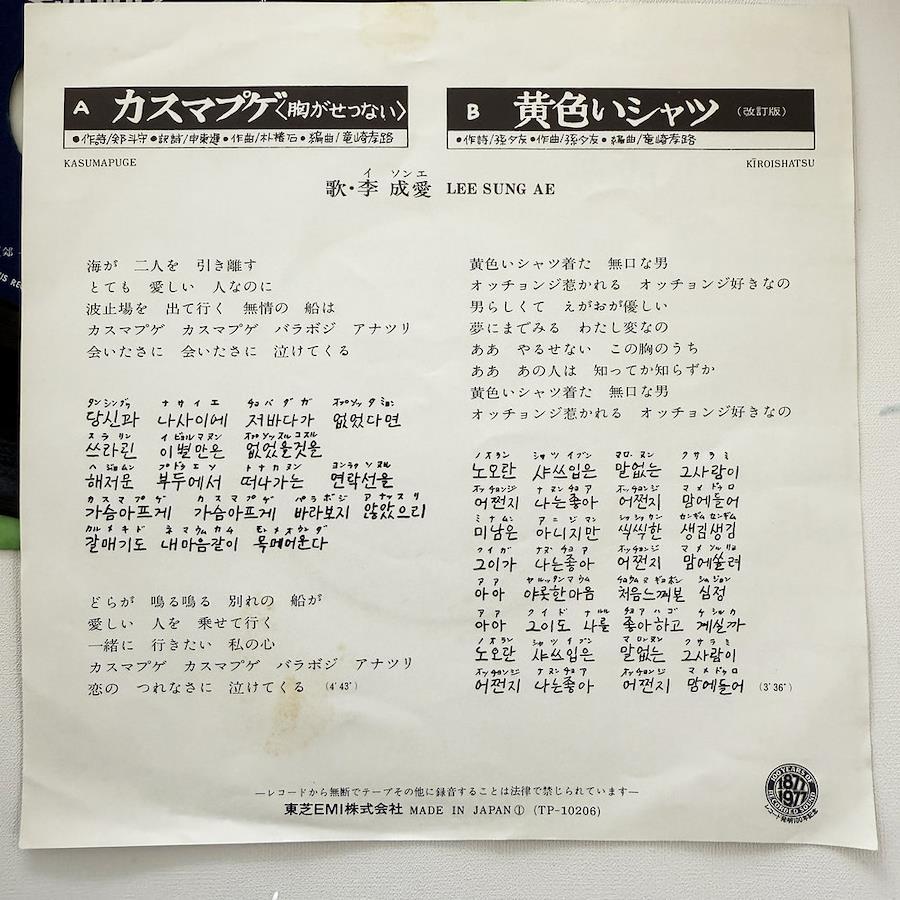 A カスマプゲ〈胸がせつない〉
●作詩/鄭斗守 ●訳詩/申東運 ●作曲/朴椿石 ●編曲/竜崎孝路
KASUMAPUGE
B 黄色いシャツ (改訂版)
●作詩/孫夕友 ●作曲/孫夕友 ●編曲/竜崎孝路
KĪROISHATSU
イ ソンエ
歌・李 成愛 LEE SUNG AE
海が 二人を 引き離す
とても 愛しい 人なのに
波止場を 出て行く 無情の 船は
カスマプゲ カスマプゲ バラボジ アナツリ
会いたさに 会いたさに 泣けてくる
당신과 나사이에 저바다가 없었다면
쓰라린 이별만은 없었을것을
해저문 부두에서 떠나가는 연락선을
カスマプゲ カスマプゲ パラボジ アナッスリ
가슴아프게 가슴아프게 바라보지 않았으리
갈매기도 내마음같이 목메어운다
どらが 鳴る鳴る 別れの 船が
愛しい 人を 乗せて行く
一緒に 行きたい 私の心
カスマプゲ カスマプゲ バラボジ アナツリ
恋の つれなさに 泣けてくる (4'43")
黄色いシャツ着た 無口な男
オッチョンジ惹かれる オッチョンジ好きなの
男らしくて えがおが優しい
夢にまでみる わたし変なの
ああ やるせない この胸のうち
ああ あの人は 知ってか知らずか
黄色いシャツ着た 無口な男
オッチョンジ惹かれる オッチョンジ好きなの
ノオラン シャツイブン マロンヌン クサラミ
노오란 샤쓰입은 말없는 그사람이
어쩐지 나는좋아 어쩐지 맘에들어
미남은 아니지만 씩씩한 생김생김
그이가 나는좋아 어쩐지 맘에쏠려
아아 야릇한마음 처음느껴본 심정
아아 그이도 나를 좋아하고 계실까
노오란 샤쓰입은 말없는 그사람이
어쩐지 나는좋아 어쩐지 맘에들어 (3'36")
—レコードから無断でテープその他に録音することは法律で禁じられています—
東芝EMI株式会社 MADE IN JAPAN① (TP-10206)
100 YEARS OF RECORDED SOUND
1877
1977
レコード発明100年記念